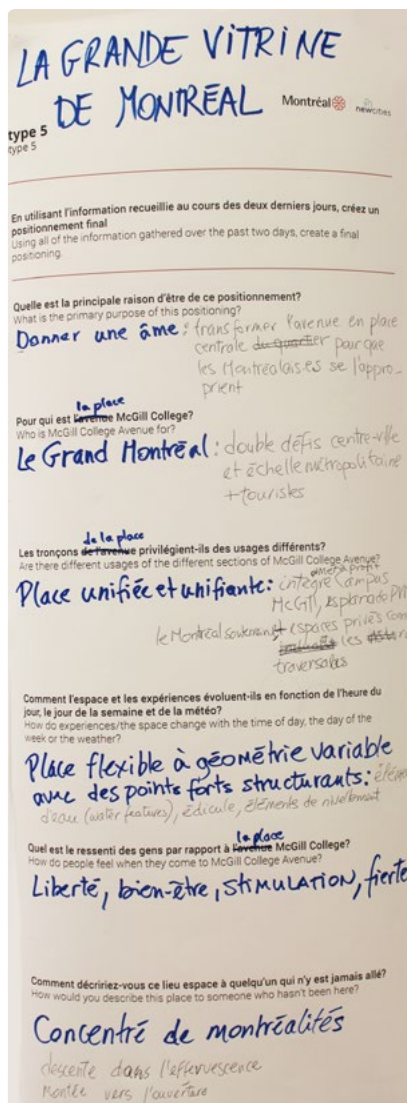 LA GRANDE VITRINE
DE MONTRÉAL
Montréal
newcities
type 5
type 5
En utilisant l'information recueillie au cours des deux derniers jours, créez un
positionnement final
Using all of the information gathered over the past two days, create a final
positioning.
Quelle est la principale raison d'être de ce positionnement?
What is the primary purpose of this positioning?
Donner une âme : transformer l'avenue en place
centrale du quartier pour que
les Montréalais.es se l'appro-
prient
la place
Pour qui est l'avenue McGill College?
Who is McGill College Avenue for?
Le Grand Montréal : double défis centre-ville
et échelle métropolitaine
+ touristes
de la place
Les tronçons de l'avenue privilégient-ils des usages différents?
Are there different usages of the different sections of McGill College Avenue?
met à profit
Place unifiée et unifiante : intègre Campus
McGill, esplanade PV
le Montréal souterrain, + espaces privés
les
traversales
Comment l'espace et les expériences évoluent-ils en fonction de l'heure du
jour, le jour de la semaine et de la météo?
How do experiences/the space change with the time of day, the day of the
week or the weather?
Place flexible à géométrie variable
avec des points forts structurants :
d'eau (water features), édicule, éléments de nivellement
la place
Quel est le ressenti des gens par rapport à l'avenue McGill College?
How do people feel when they come to McGill College Avenue?
Liberté, bien-être, STIMULATION, fierté
Comment décririez-vous ce lieu espace à quelqu'un qui n'y est jamais allé?
How would you describe this place to someone who hasn't been here?
Concentré de montréalités
descente dans l'effervescence
montée vers l'ouverture